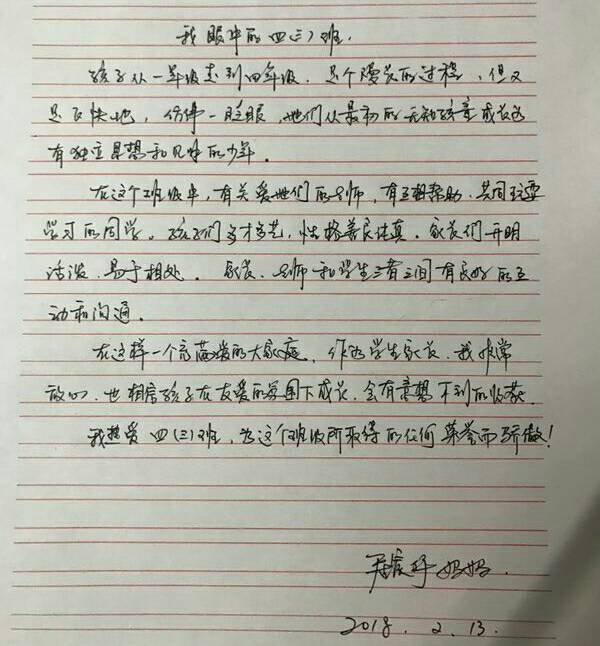 我眼中的四(三)班.
孩子从一年级走到四年级.是个漫长的过程,但又
是飞快地,仿佛一眨眼,她们从最初的无知孩童成长为
有独立思想和见解的少年.
在这个班级中,有关爱她们的老师,有互相帮助.共同玩耍
学习的同学。孩子们多才多艺,性格善良纯真.家长们开明
活泼,易于相处.家长、老师和学生三者之间有良好的互
动和沟通.
在这样一个充满爱的大家庭,作为学生家长,我非常
放心,也相信孩子在友爱的氛围下成长,会有意想不到的收获.
我热爱四(三)班,为这个班级所取得的任何荣誉而骄傲!
妈妈.
2018.2.13.